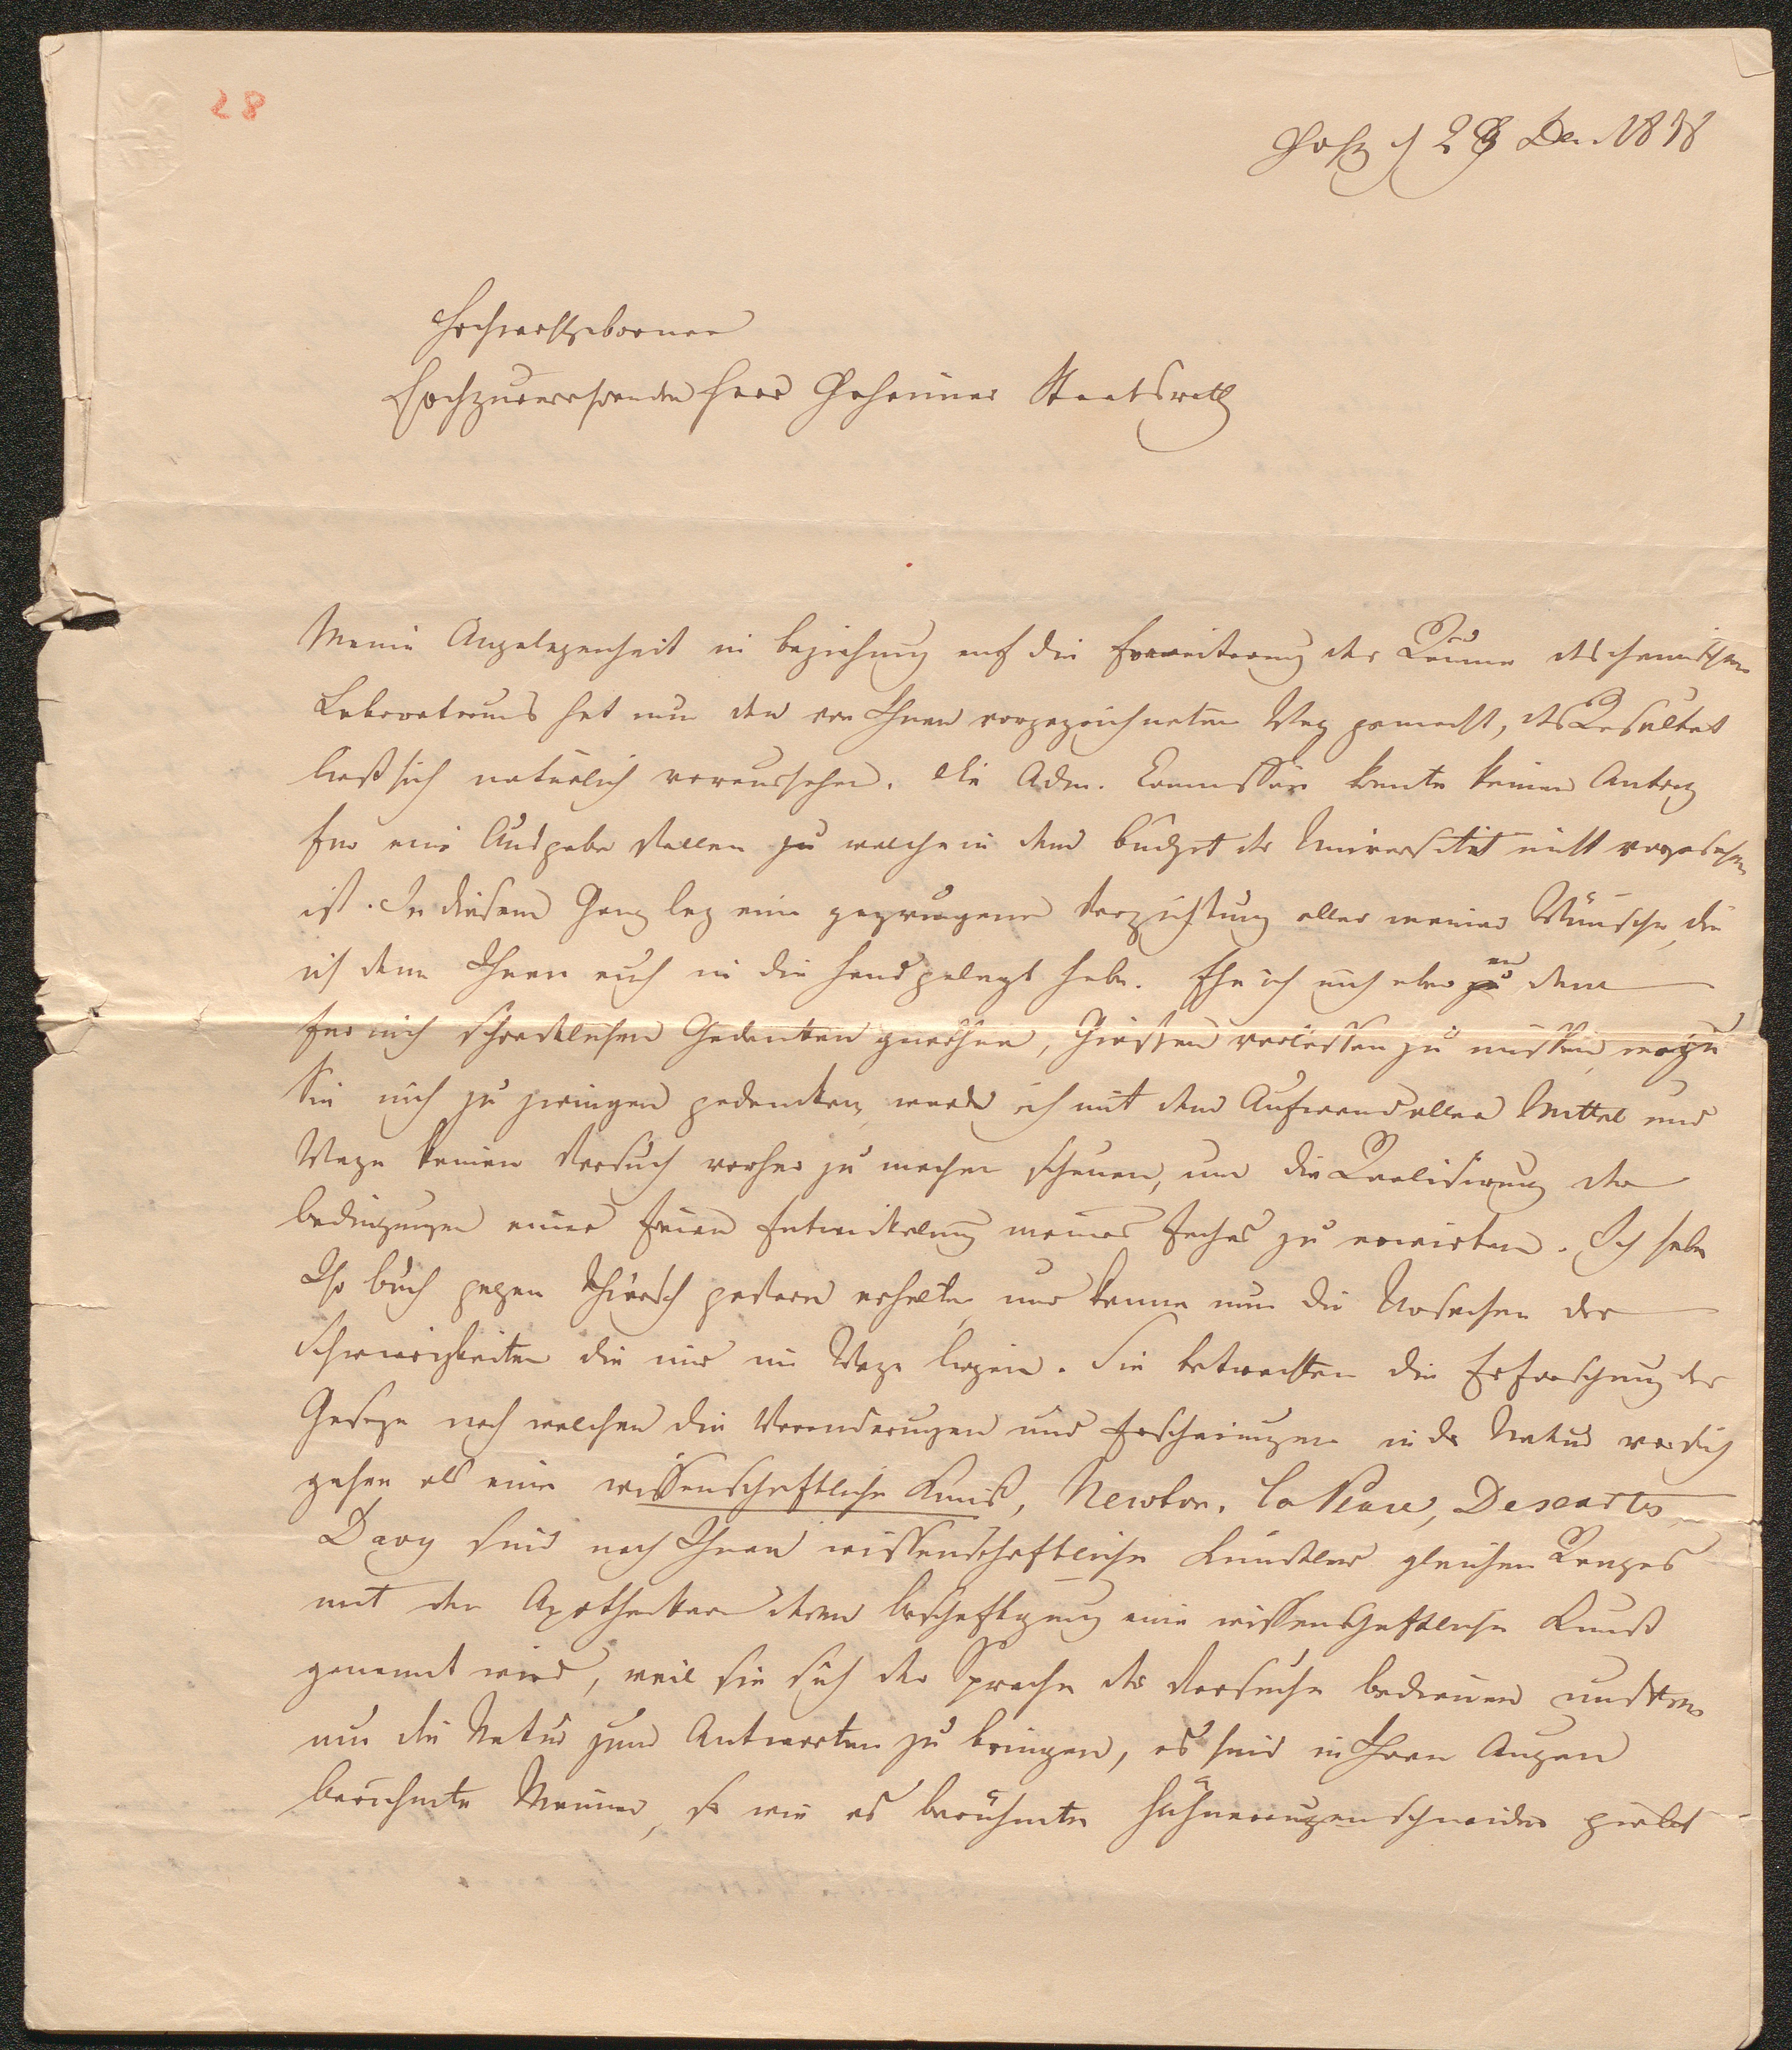 28
d 29 Dec 1838
Hochwohlgeborner
Hochzuverehrender Herr Geheimer Staatsrath
Meine Angelegenheit in Beziehung auf die Erweiterung der Räume des chemischen
Laboratoriums hat nun den von Ihnen vorgezeichneten Weg gemacht, das Resultat
ließ sich natürlich voraussehen. Die Adm. Commission konnte keinen Antrag
für eine Ausgabe stellen zu welcher in dem Budget der Universität nicht vorgesehen
ist. In diesem Gang lag eine gezwungene Verzichtung aller meiner Wünsche, die
ich denn Ihnen auch in die Hand gelegt habe. Ehe ich mich aber an dem
für mich schrecklichen Gedanken gewöhne, Giessen verlassen zu müssen, wozu
Sie mich zu zwingen gedenken, werde ich mit dem Aufwand aller Mittel und
Wege keinen Versuch vorher zu machen scheuen, um die Realisirung der
Bedingungen einer freien Entwickelung meines Faches zu erwirken. Ich habe
Ihr Buch gegen Thiersch gestern erhalten und kenne nun die Ursachen der
Schwierigkeiten die mir im Wege liegen. Sie betrachten die Erforschung der
Geseze nach welchen die Veränderungen und Erscheinungen in der Natur vor sich
gehen als eine wissenschaftliche Kunst, Newton, La Place, Descartes,
Davy sind nach Ihnen wissenschaftliche Künstler gleichen Ranges
mit den Apothekern deren Beschäftigung eine wissenschaftliche Kunst
genannt wird, weil sie sich der Sprache der Versuche bedienen mußten
um die Natur zum Antworten zu bringen, es sind in Ihren Augen
berühmte Männer, so wie es berühmte Hühneraugenschneider giebt